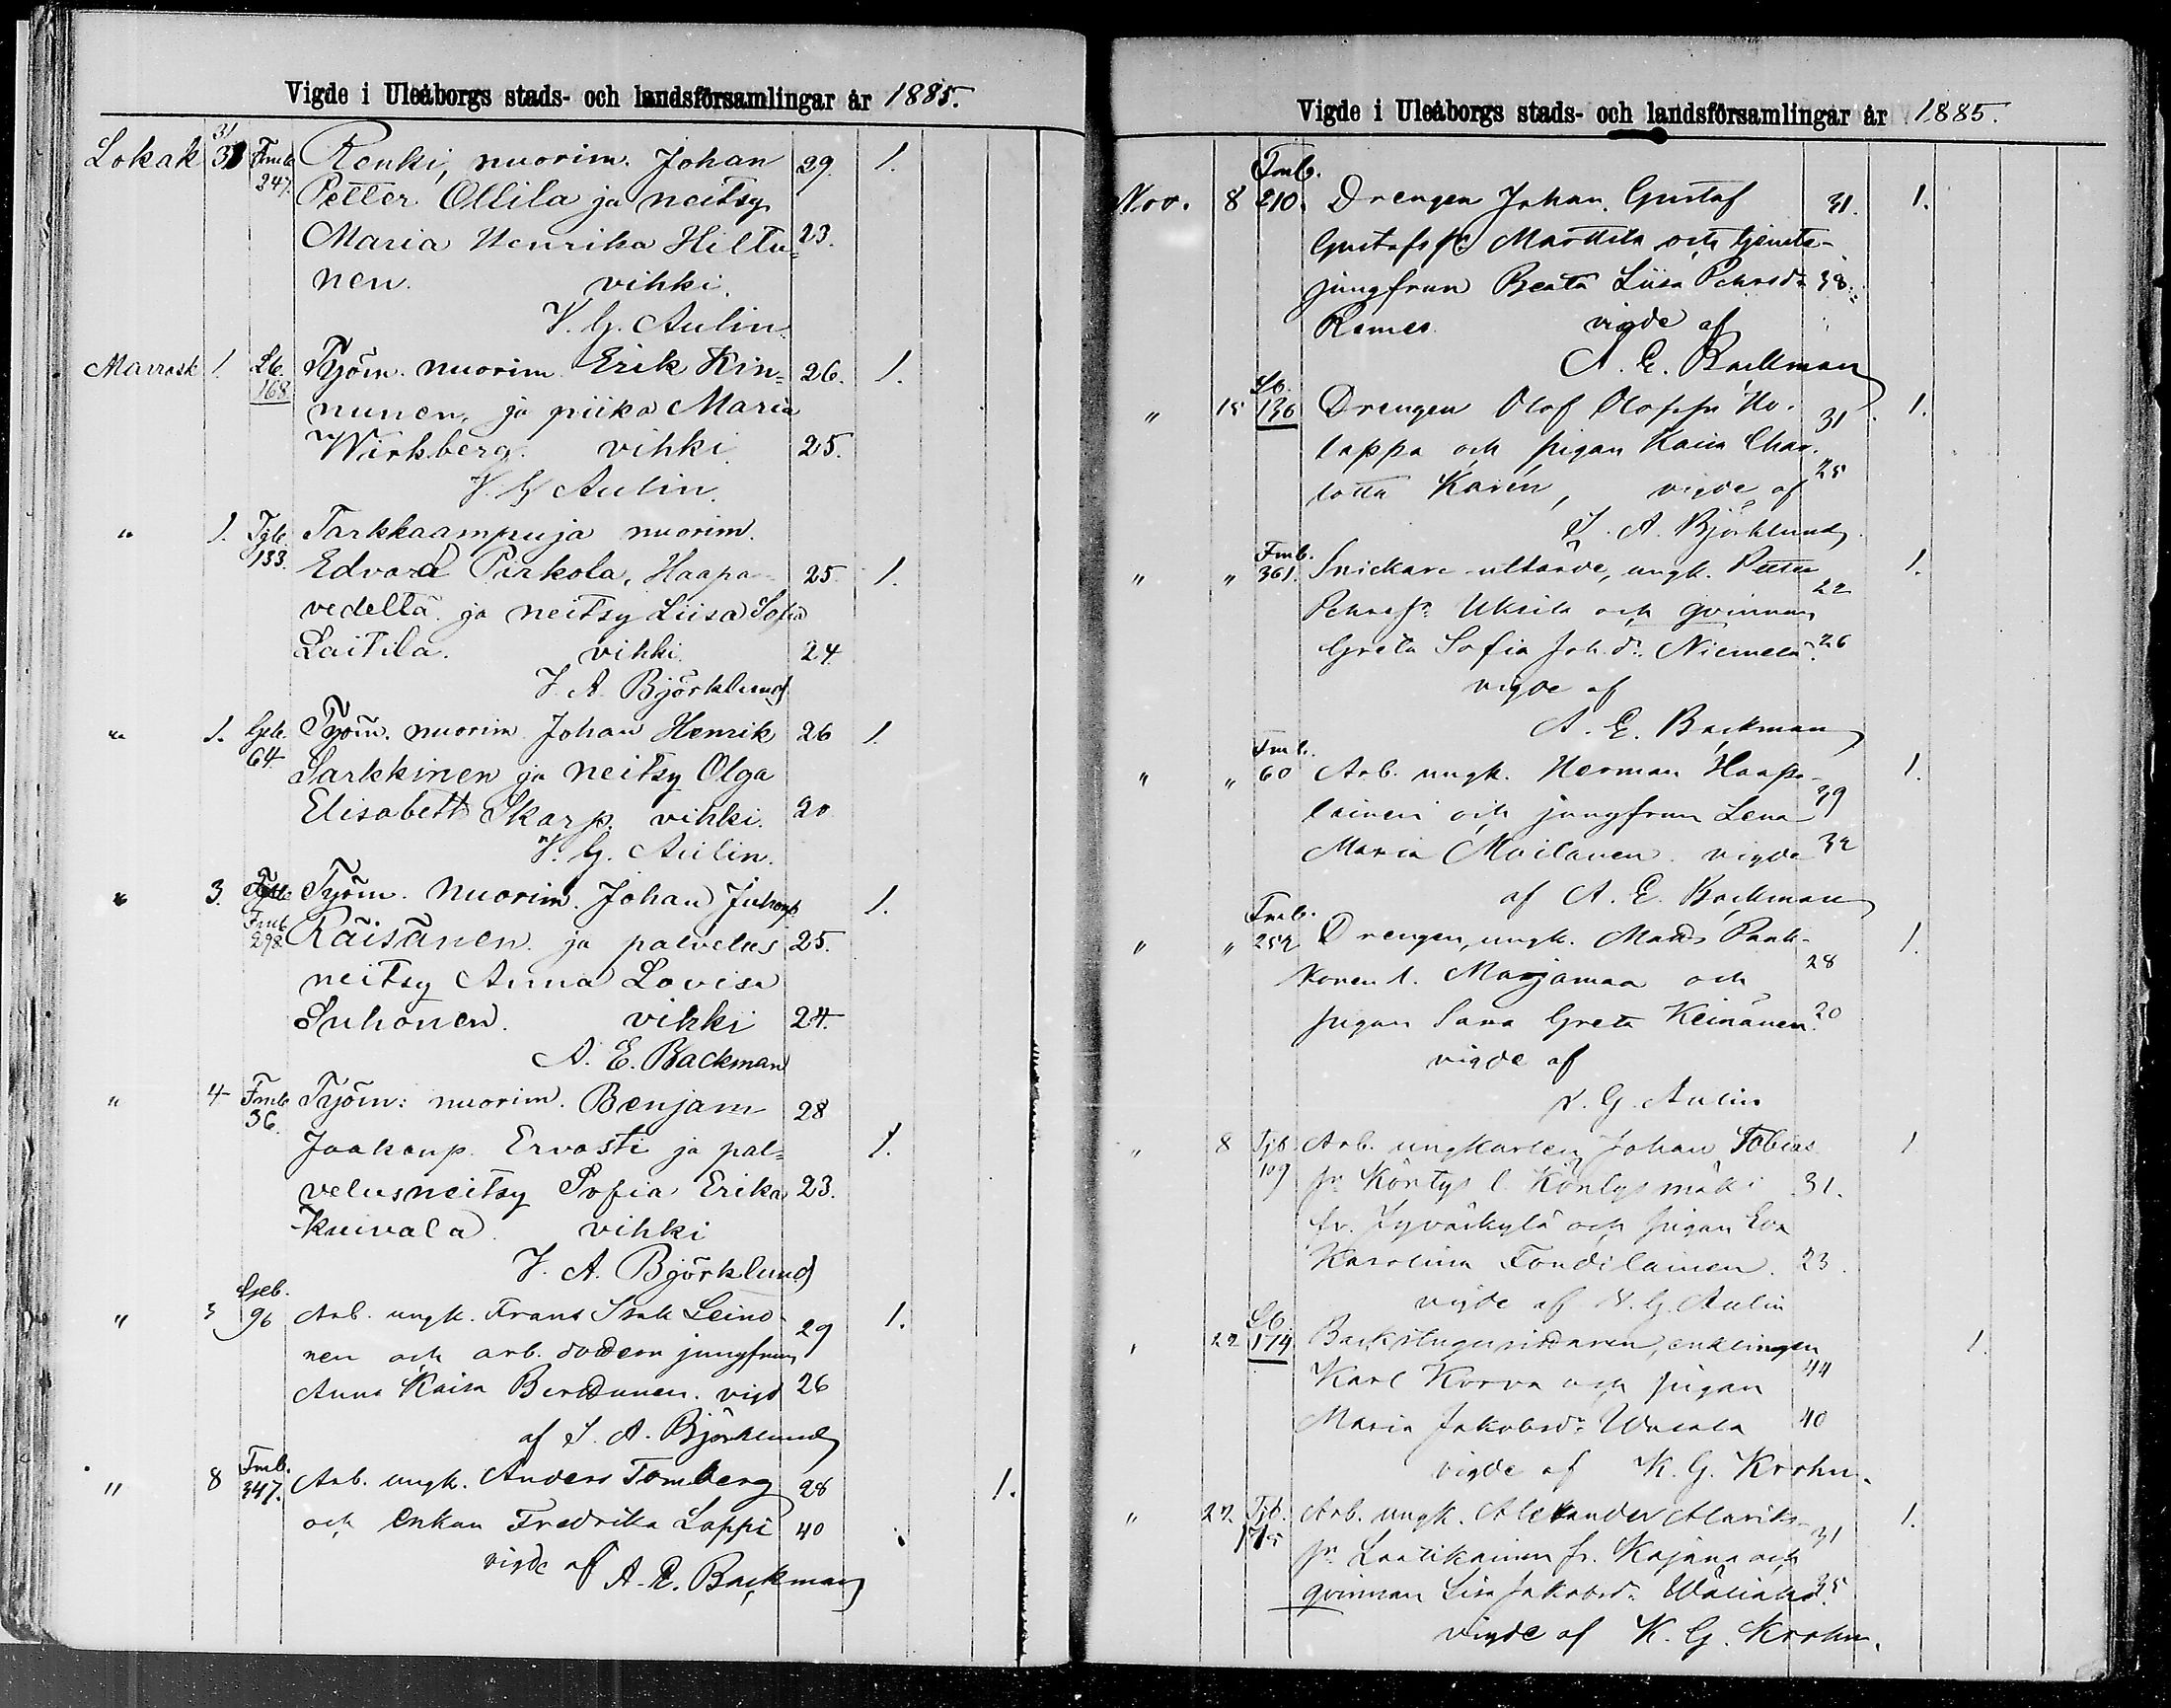 Vigde i Uleåborgs stads- och landsförsamlingar år 1885.
Lokak 31 Fmb. 247. Renki, nuorim. Johan 29. 1.
Petter Ollila ja neitsy
Maria Henrika Hiltu= 23.
nen. vihki
V. G. Aulin.
Marrask 1. Lb. 168 Työm. nuorim. Erik Kin= 26. 1.
nunen, ja piika Maria
Wirkberg. vihki 25.
V. G. Aulin.
" 1. Tjb. 133. Tarkkaampuja nuorim.
Edvard Pirkola, Haapa= 25. 1.
vedeltä ja neitsy Liisa Sofia
Laitila. vihki 24
J. A. Björklund
" 1. Geb. 64 Työm. nuorim. Johan Henrik 26 1.
Sarkkinen ja neitsy Olga
Elisabeth Skarp. vihki. 20
V. G. Aulin.
" 3. Fmb. 298 Työm. Nuorim. Johan Juhonp. 1.
Räisänen ja palvelus 25.
neitsy Anna Lovisa
Suhonen. vihki 24.
A. E. Backman
" 4 Fmb. 36. Työm: nuorim. Benjam 28
Jaakonp. Ervasti ja pal= 1.
velusneitsy Sofia Erika 23.
Kuivala. vihki
J. A. Björklund
" 3 Geb. 96 Arb. ungk. Frans Isak Leino- 29 1.
nen och arb. dottern jungfrun
Anna Kaisa vigd 26
af J. A. Björklund
" 8 Fmb. 347. Arb. ungk. Anders Tomberg 28 1.
och Enkan Fredrika Lappi 40
vigde af A. E. Backman
Vigde i Uleåborgs stads- och landsförsamlingar år 1885.
Nov. 8 Fmb. 210. Drengen Johan Gustaf 31. 1.
Gustafss. Marttila och tjenste-
jungfrun Beata Liisa Pehrsdr 38.
Remes. vigde af
A. E. Backman
" 15 Lb. 136 Drengen Olof Olofssn Ho- 31 1.
lappa och pigan Kaisa Char-
lotta Karén, vigde af 25
J. A. Björklund
" " Fmb. 361. Snickare-utlärde, ungk. Petter 22 1.
Pehrssn Uksila och qvinnan
Greta Sofia Joh.dr. Niemelä 26
vigde af
A. E. Backman
" " Fmb. 60 Arb. ungk. Herman Haapa- 39 1.
lainen och jungfrun Lena
Maria Moilanen. vigde 32
af A. E. Backman
" " Fmb. 252 Drengen, ungk. Matts Paak- 28 1.
konen l. Marjamaa och
pigan Sara Greta Keinänen. 20
vigde af
V. G. Aulin
" 8 Tjb. 109 Arb. ungkarlen Johan Tobias 1
sn Köntys l. Köntysmäki 31.
fr. Jyväskylä och pigan Eva
Karolina Tondilainen. 23.
vigde af V. G. Aulin
" 22 Lb. 174 Backstugusittaren, enklingen 44 1.
Karl Korva och pigan
Maria Jakobsdr 40
vigde af K. G. Krohn.
" 22 Tjb. Arb. ungk. Alexander Alariks- 31 1.
sn Laatikainen fr. Kajana och
qvinnan Lisa Jakobsdr 35
vigde af K. G. Krohn.